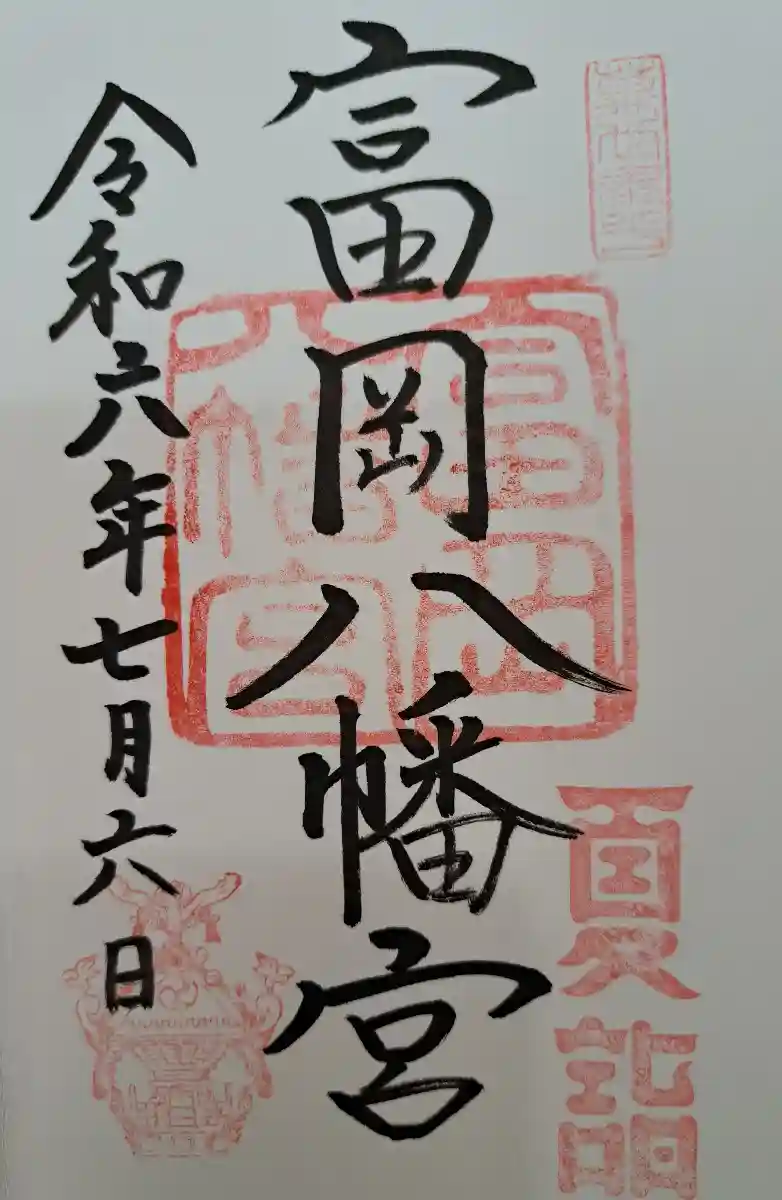 富岡八幡宮
富岡八幡宮
夏詣
令和六年七月六日